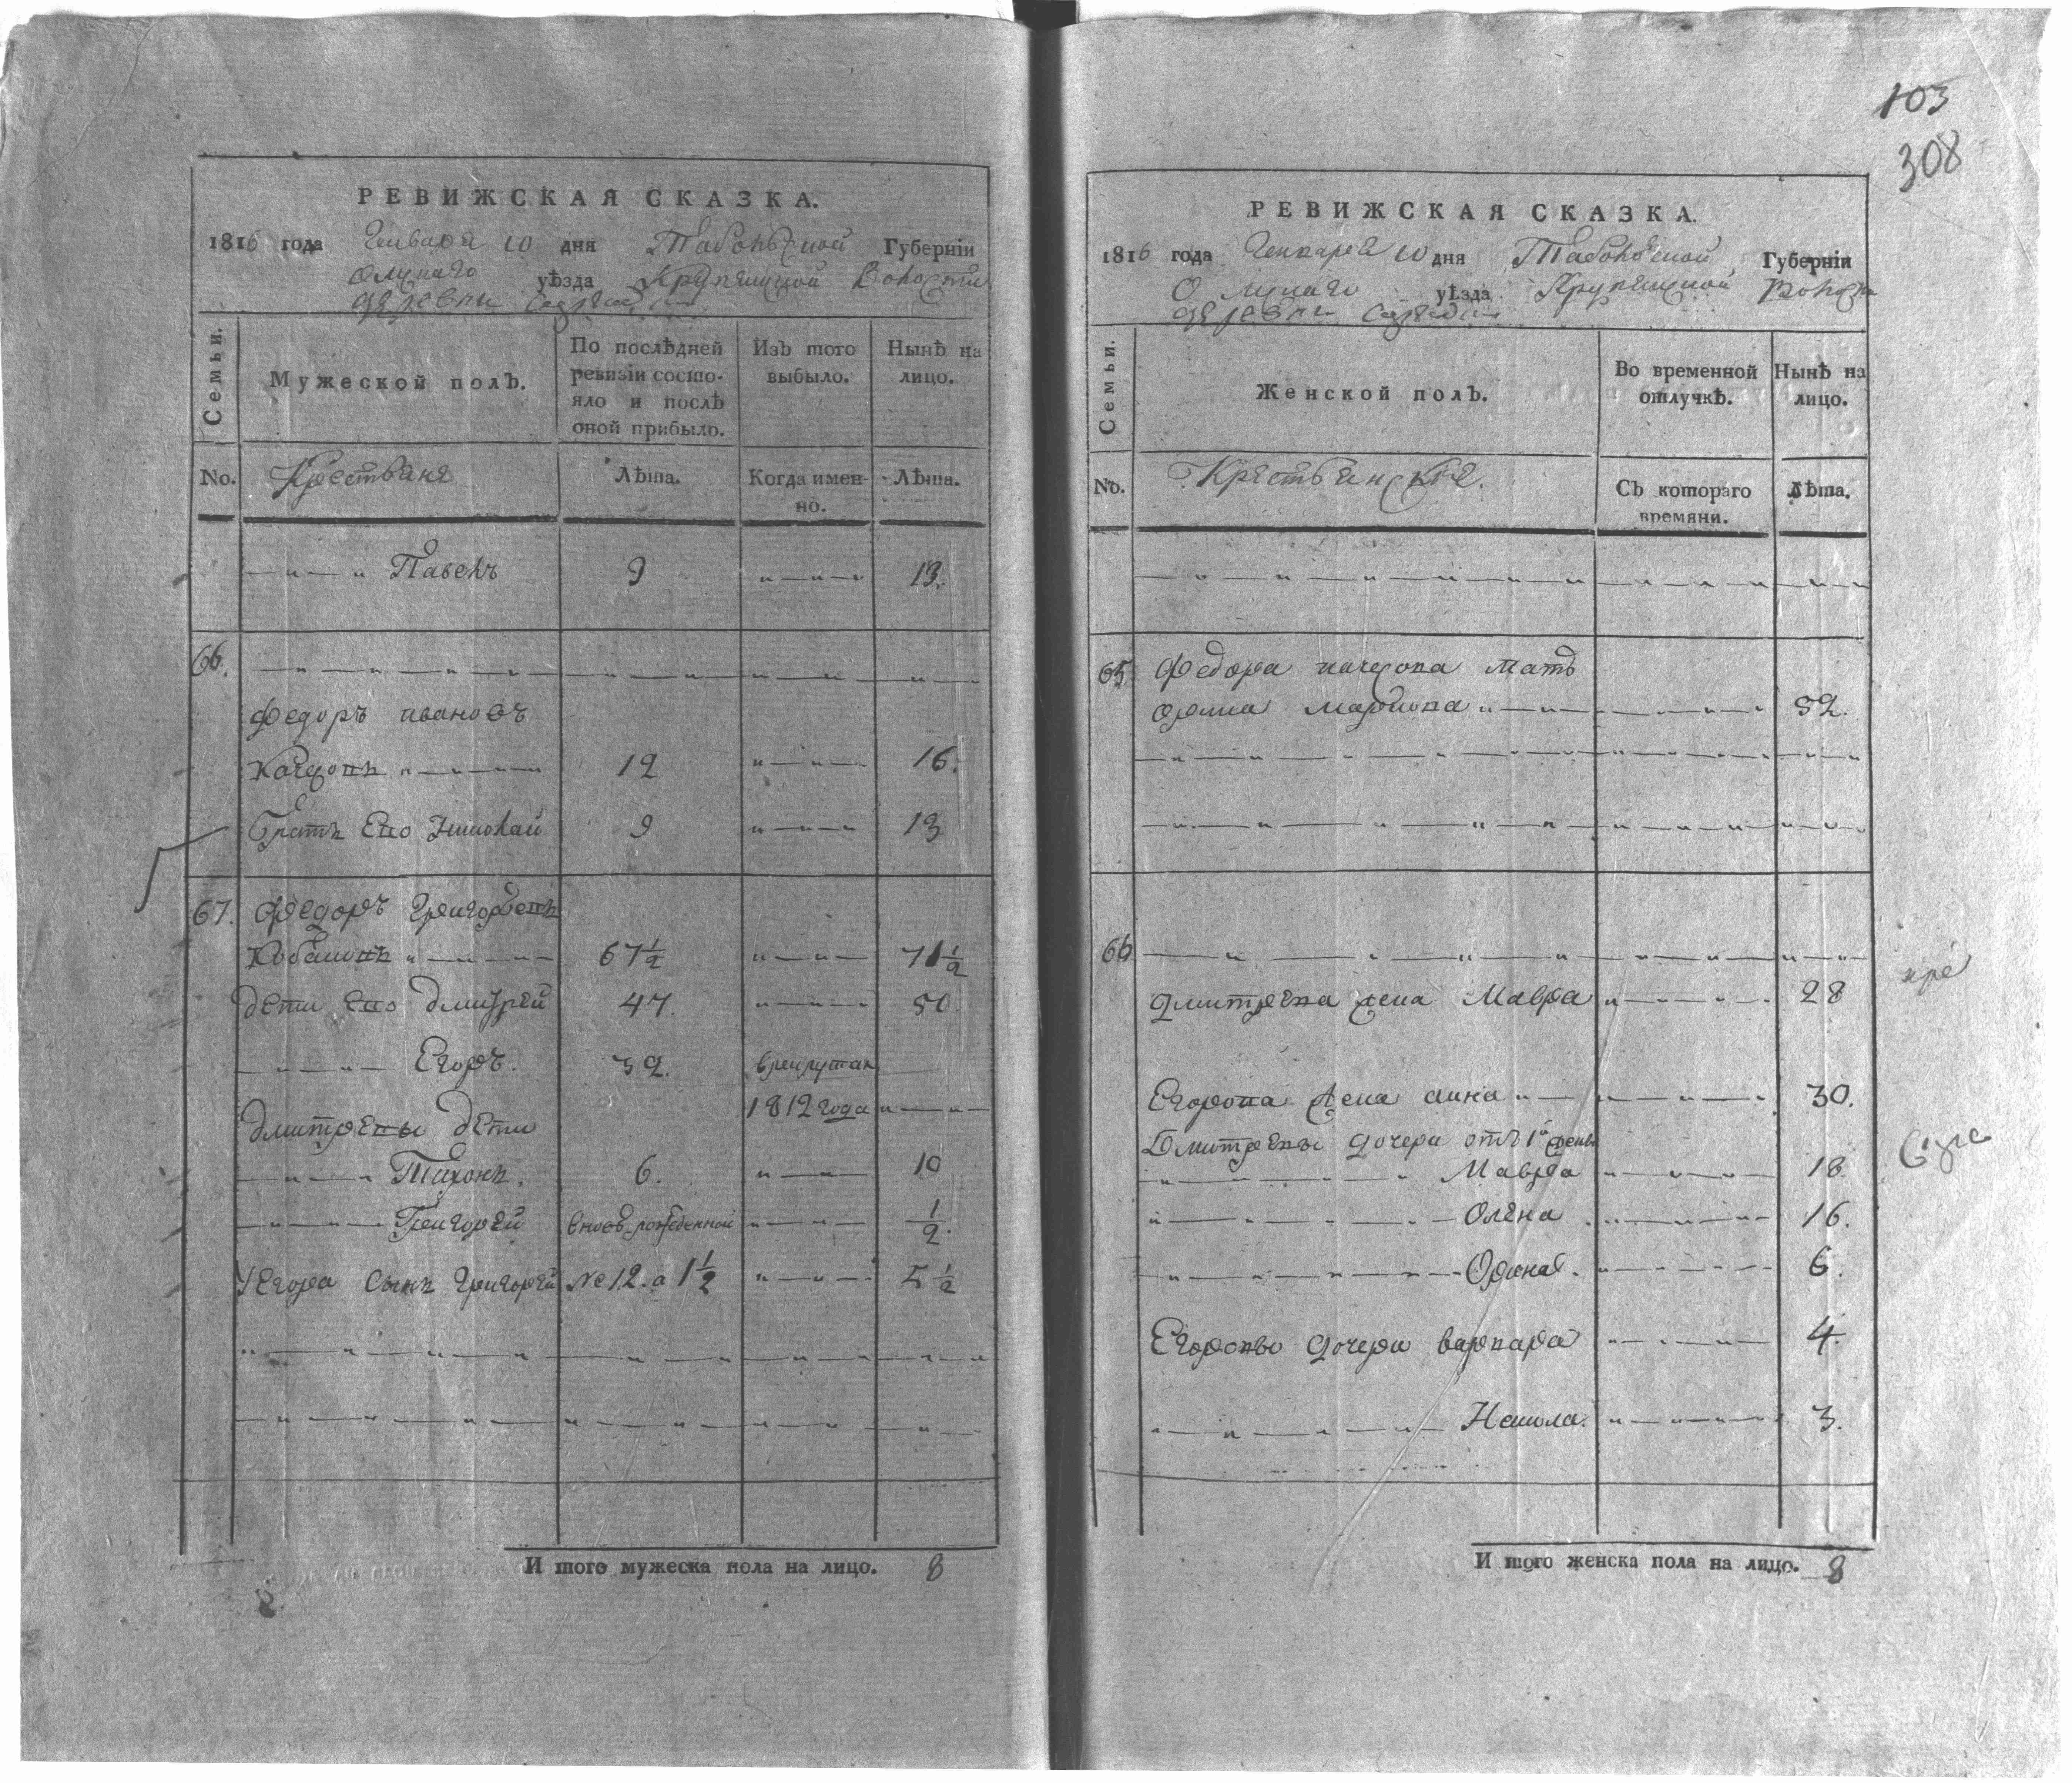 103
308
РЕВИЖСКАЯ СКАЗКА.
1816 года Генваря 10 дня Тобольской Губерніи
Омскаго уѣзда Крупянской Волости
деревни
Семьи.
Мужеской полъ.
По послѣдней ревизіи состо-
яло и послѣ
оной прибыло.
Изъ того
выбыло.
Нынѣ на
лицо.
No.
Крестьяне
Лѣта.
Когда имен-
но.
Лѣта.
Павелъ 9 13.
66.
Федоръ Ивановъ
12 16.
Братъ Ево Николай 9 13
67. Федоръ Григорьевъ
67½ 71½
Дети Ево Дмитрей 47. 50.
Егоръ. 39. в рекрутах
1812 года
Дмитревы Дети
Тихонъ. 6. 10
Григорей вновь рожденной ½.
У Егора Сынъ Григорей №12.а 1½ 5½
И того мужеска пола на лицо. 8
8
РЕВИЖСКАЯ СКАЗКА.
1816 года Генваря 10 дня Тобольской Губерніи
Омскаго уѣзда Крупянской Волости
деревни
Семьи.
Женской полъ.
Во временной
отлучкѣ.
Нынѣ на
лицо.
No.
Крестьянские.
Съ котораго
времяни.
Лѣта.
65. Федора мать
Орина Маркова 52.
66
Дмитрева жена Мавра 28
Егорова жена Анна 30.
Дмитревы дочери отъ 1й жены
Мавра 18.
Олена 16.
Орина. 6.
Егоровы дочери Варвара 4.
3.
И того женска пола на лицо. 8